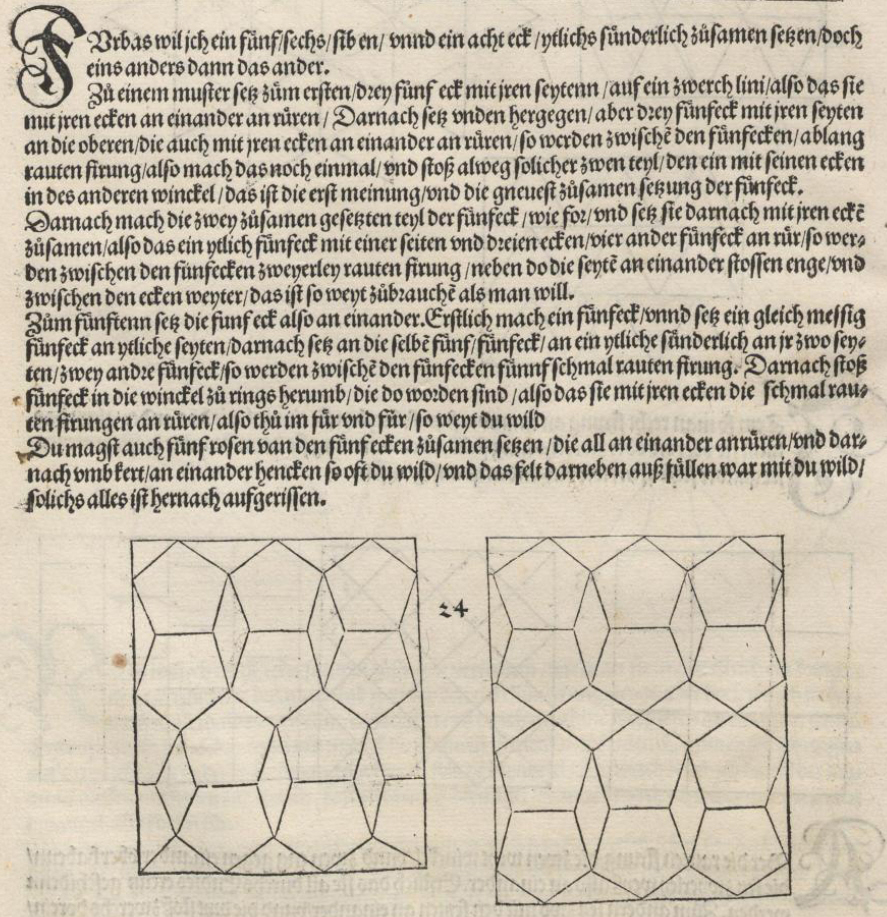 FVrbas wil jch ein fünf/sechs/sib en/ vnnd ein acht eck/ytlichs sünderlich zůsamen setzen/doch
eins anders dann das ander.
Zů einem muster setz zům ersten/drey fünf eck mit jren seytenn/auf ein zwerch lini/also das sie
mit jren ecken an einander an rüren/ Darnach setz vnden hergegen/aber drey fünfeck mit jren seyten
an die oberen/die auch mit jren ecken an einander an rüren/so werden zwischē den fünfecken/ablang
rauten firung/also mach das noch einmal/vnd stoß alweg solicher zwen teyl/den ein mit seinen ecken
in des anderen winckel/das ist die erst meinung/vnd die gneuest zůsamen setzung der fünfeck.
Darnach mach die zwey zůsamen gesetzten teyl der fünfeck/wie for/vnd setz sie darnach mit jren eckē
zůsamen/also das ein ytlich fünfeck mit einer seiten vnd dreien ecken/vier ander fünfeck an rür/so wer⸗
den zwischen den fünfecken zweyerley rauten firung/neben do die seytē an einander stossen enge/vnd
zwischen den ecken weyter/das ist so weyt zůbrauchē als man will.
Zům fünftenn setz die funf eck also an einander. Erstlich mach ein fünfeck/vnnd setz ein gleich messig
fünfeck an ytliche seyten/darnach setz an die selbē fünf/fünfeck/an ein ytliche sünderlich an jr zwo sey⸗
ten/zwey andre fünfeck/so werden zwischē den fünfecken fünnf schmal rauten firung. Darnach stoß
fünfeck in die winckel zů rings herumb/die do worden sind/also das sie mit jren ecken die schmal rau⸗
ten firungen an rüren/also thů im für vnd für/so weyt du wild
Du magst auch fünf rosen van den fünf ecken zůsamen setzen/die all an einander anrüren/vnd dar⸗
nach vmb kert/an einander hencken so oft du wild/vnd das felt darneben auß füllen war mit du wild/
solichs alles ist hernach aufgerissen.
24